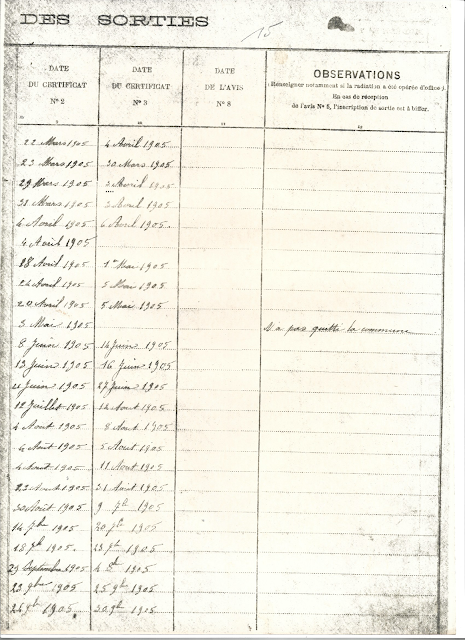 DES SORTIES
15
DATE DU CERTIFICAT N° 2
DATE DU CERTIFICAT N° 3
DATE DE L'AVIS N° 8
OBSERVATIONS
(Renseigner notamment si la radiation a été opérée d'office).
En cas de réception
de l'avis N° 8, l'inscription de sortie est à biffer.
22 Mars 1905 4 Avril 1905
23 Mars 1905 30 Mars 1905
29 Mars 1905 Avril 1905
31 Mars 1905 Avril 1905
4 Avril 1905 6 Avril 1905.
4 Avril 1905
18 Avril 1905 1er Mai 1905
Avril 1905 5 Mai 1905
20 Avril 1905 5 Mai 1905
3 Mai 1905 N'a pas quitté la commune
8 Juin 1905 14 Juin 1905
13 Juin 1905 16 Juin 1905
Juin 1905 27 Juin 1905
12 Juillet 1905 14 Aout 1905
4 Aout 1905 8 Aout 1905
Août 1905 5 Aout 1905
4 Août 1905 11 Aout 1905
23 Août 1905 31 Août 1905
30 Août 1905 9 1905
14 1905 30 1905
18 1905. 23 1905
29 Septembre 1905 4 1905
23 1905 25 1905
1905 30 1905